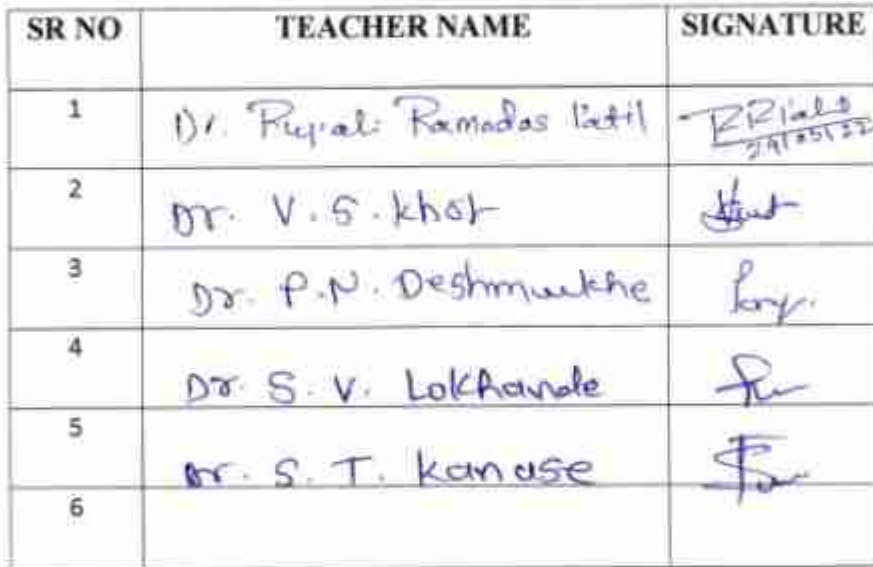 SR NO TEACHER NAME SIGNATURE
1 Dr. Rupali Ramadas Patil
2 Dr. V. S. Khot
3 Dr. P. N. Deshmukhe
4 Dr. S. V. Lokhande
5 Dr. S. T. Kanase
6